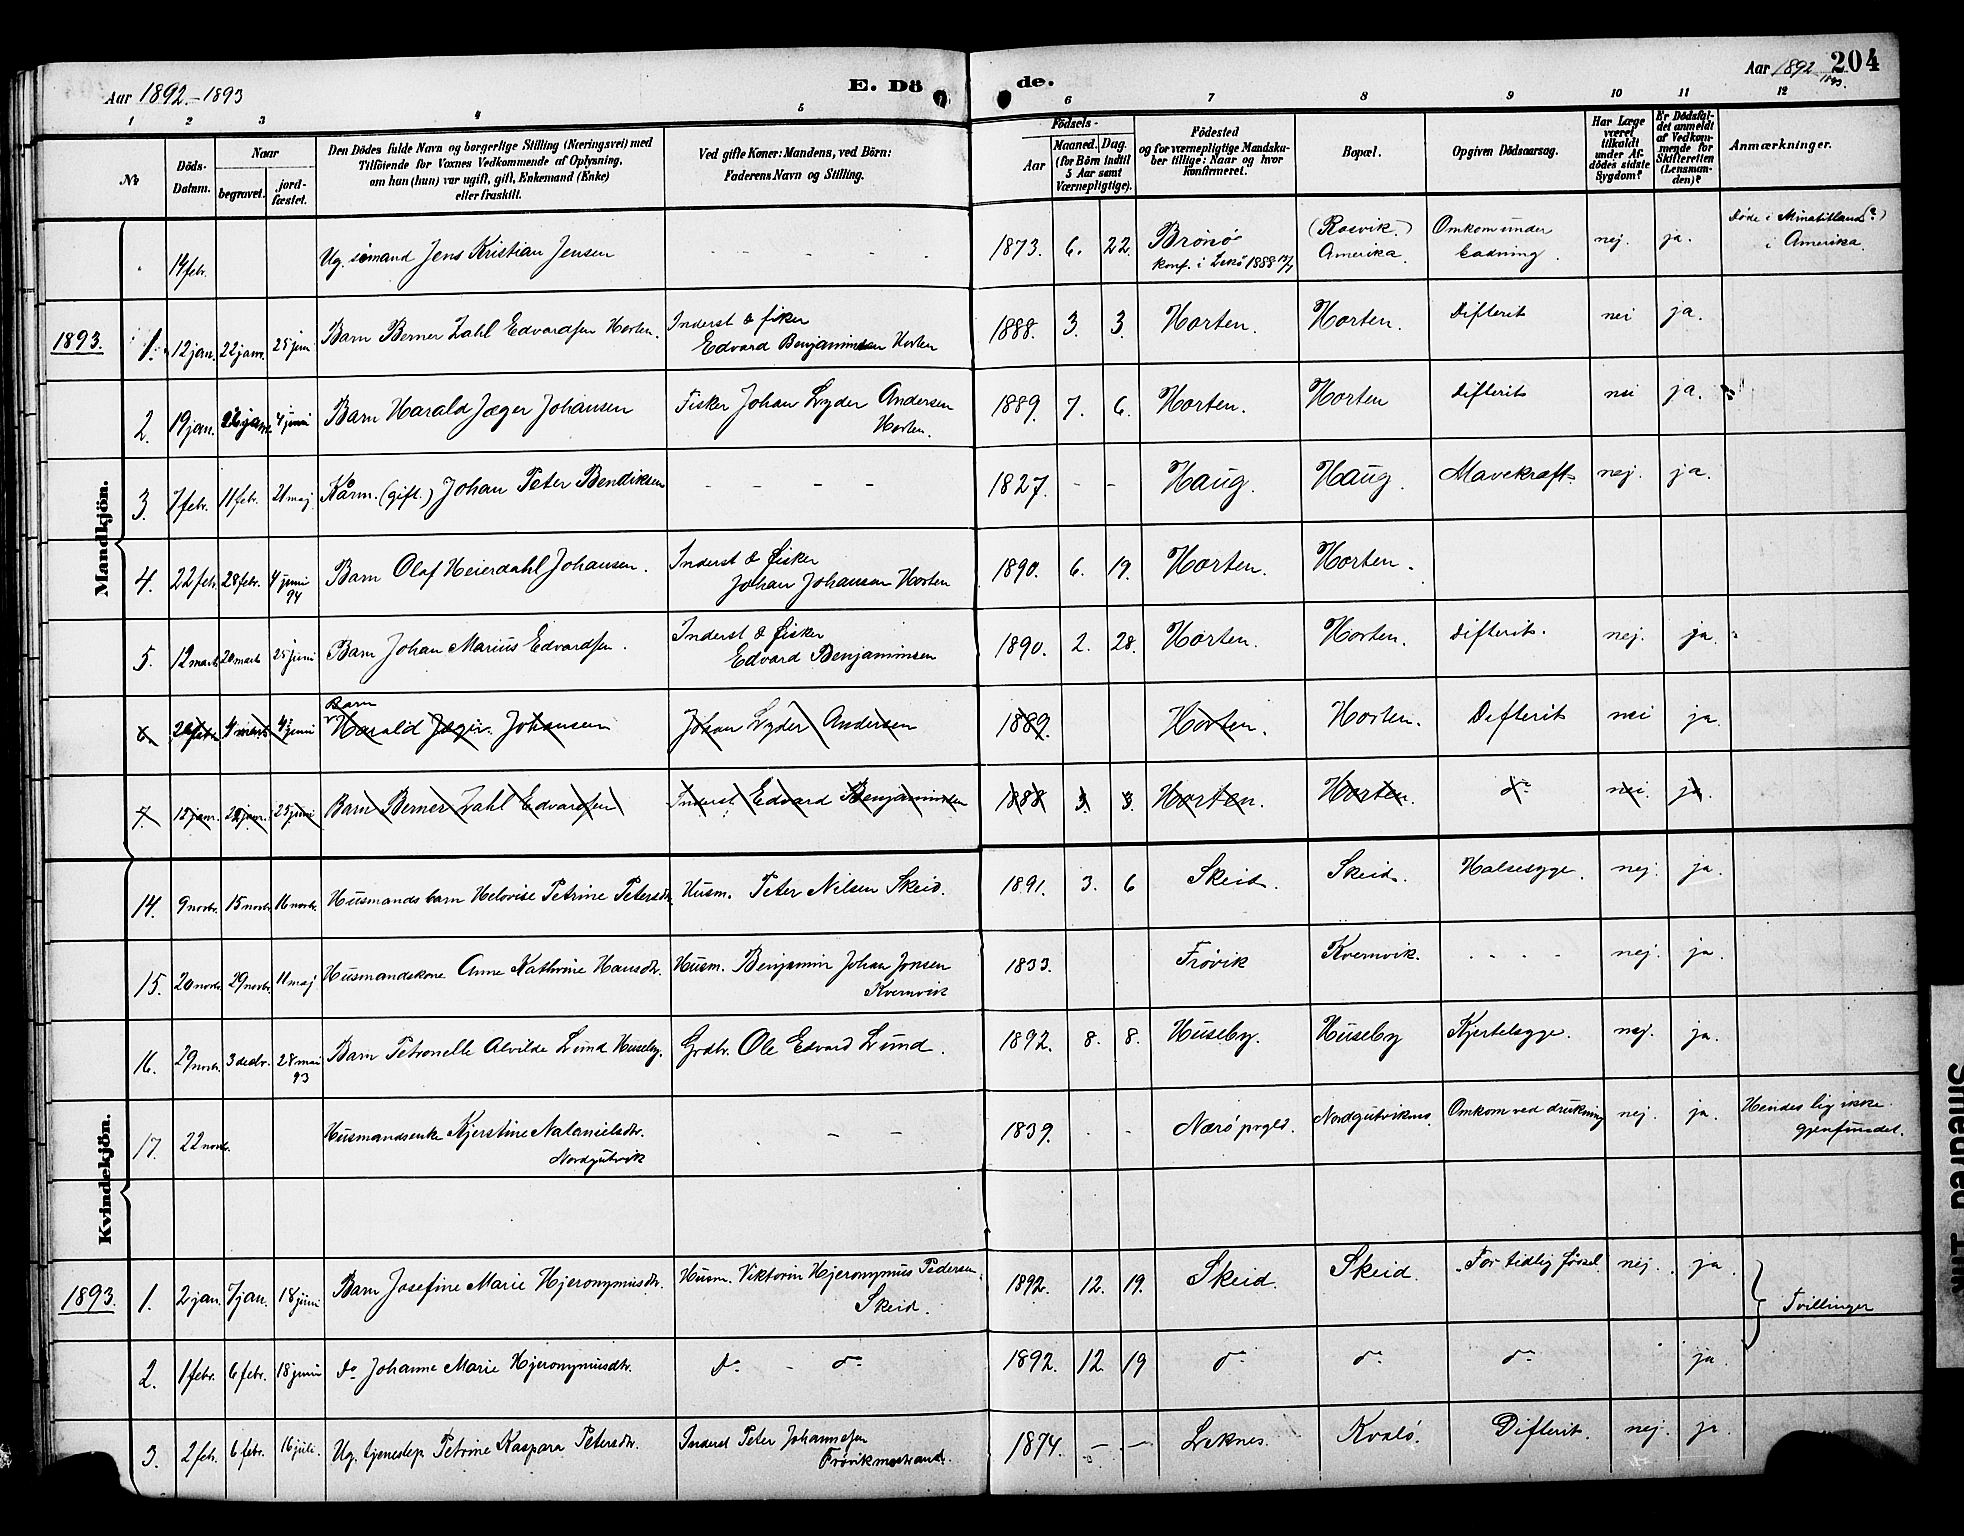 Aar 1892.-1893
E. Dö
de.
Aar 1892
1893.
204
1 2 3 4 5 6 7 8 9 10 11 12
№
Döds-Datum.
Naar
begravet.
jord-fæstet.
Den Dödes fulde Navn og borgerlige Stilling (Næringsvei) med
Tilföiende for Voxnes Vedkommende af Oplysning,
om han (hun) var ugift, gift, Enkemand (Enke)
eller fraskilt.
Ved gifte Koner: Mandens, ved Börn:
Faderens Navn og Stilling.
Födsels-
Aar
Maaned. Dag.
(for Börn indtil
5 Aar samt
Værnepligtige).
Födested
og for værnepligtige Mandska-
ber tillige: Naar og hvor
konfirmeret.
Bopæl.
Opgiven Dödsaarsag.
Har Læge
været
tilkaldt
under Af-
dödes sidste
Sygdom?
Er Dödsfal-
det anmeldt
af Vedkom-
mende for
Skifteretten
(Lensman-
den)?
Anmærkninger.
Mandkjön.
14 febr. Ug. sömand Jens Kristian Jensen - - - - 1873. 6. 22. Brönö konf. i Lekö 1888 (Rosvik.) Amerika. Omkom under ladning. nej. ja. Döde i Minatitland (?) i Amerika.
1893. 1. 12 jan. 22 jan. 25 juni Barn Berner Zahl Edvardsen Horten. Inderst & fisker Edvard Benjaminsen Horten 1888. 3. 3. Horten. Horten. Difterit nei ja.
2. 19 jan. 4 juni Barn Harald Jæger Johansen Fisker Johan Lyder Andersen Horten. 1889. 7. 6. Horten. Horten Difterit nei ja.
3. 7 febr. 11 febr. 21 maj Kårm. (gift.) Johan Peter Bendiksen - - - - 1827. - - Haug. Haug. Mavekræft. nej. ja.
4. 22 feb. 28 febr. 4 juni 94 Barn Olaf Heierdahl Johansen. Inderst & fisker Johan Johansen Horten 1890. 6. 19. Horten. Horten.
5. 12 marts 20 marts 25 juni Barn Johan Marius Edvardsen. Inderst & fisker Edvard Benjaminsen 1890. 2. 28. Horten. Horten. Difterit. nej. ja.
6. 4 marts 4 juni Barn Harald Jæger Johansen Johan Lyder Andersen 1889. Horten. Horten. Difterit nei ja.
7. 12 jan. 22 jan. 25 juni Barn Berner Zahl Edvardsen Inderst Edvard Benjaminsen 1888 3. 3. Horten. Horten. do nei. ja.
Kvindekjön.
14. 9 novbr. 15 novbr. 16 novbr. Husmandsbarn Helovise Petrine Petersdtr. Husm. Peter Nilsen Skeid. 1891. 3. 6 Skeid. Skeid. Halsesyge. nej. ja.
15. 20 novbr. 29 novbr. 11 maj Husmandskone Anne Kathrine Hansdtr. Husm. Benjamin Johan Jonsen Kvernvik 1833. Frövik Kvernvik. - - - - nej. ja.
16. 29 novbr. 3 decbr. 28 mai 93 Barn Petronelle Alvilde Lund Huseby. Grdbr. Ole Edvard Lund. 1892. 8. 8. Huseby. Huseby Kjertelsyge. nej. ja.
17. 22 novbr. Husmandsenke Kjerstine Natanielsdtr. Nordgutvik - - - 1839. - - Nærö prgld. Nordgutviknes. Omkom ved drukning nej. ja. Hendes lig ikke gjenfundet.
1893. 1. 2 jan. 7 jan. 18 juni Barn Josefine Marie Hjeronymusdtr. Husm. Viktorin Hjeronymus Pedersen. Skeid. 1892. 12. 19. Skeid. Skeid. For tidlig fössel. nej. ja. Tvillinger
2. 1 febr. 6 febr. 18 juni do Johanne Marie Hjeronymusdtr. do - do 1892. 12. 19 do do do ja.
3. 2 feb. 6 febr. 16 juli. Ug. tjenestep. Petrine Kaspara Petersdtr. Inderst Peter Johannesen Frövikmostrand. 1874. - - Leknes. Kvalö. Difterit. nej. ja.